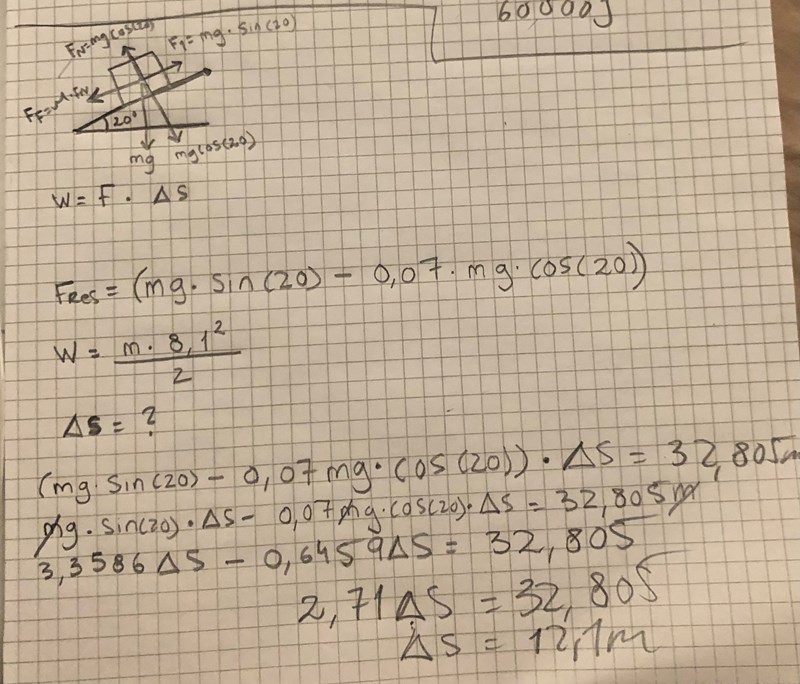 60000J
FN=mgcos(20)
F1=mg·sin(20)
FF=μ·FN
20°
mg
mgcos(20)
W = F · ΔS
FRes = (mg· sin(20) - 0,07· mg· cos(20))
W = m· 8,1²
2
ΔS = ?
(mg· sin(20) - 0,07 mg· cos(20)) · ΔS = 32,805m
mg· sin(20)· ΔS - 0,07 mg· cos(20)· ΔS = 32,805m
3,3586 ΔS - 0,6459ΔS = 32,805
2,71ΔS = 32,805
ΔS = 12,1m